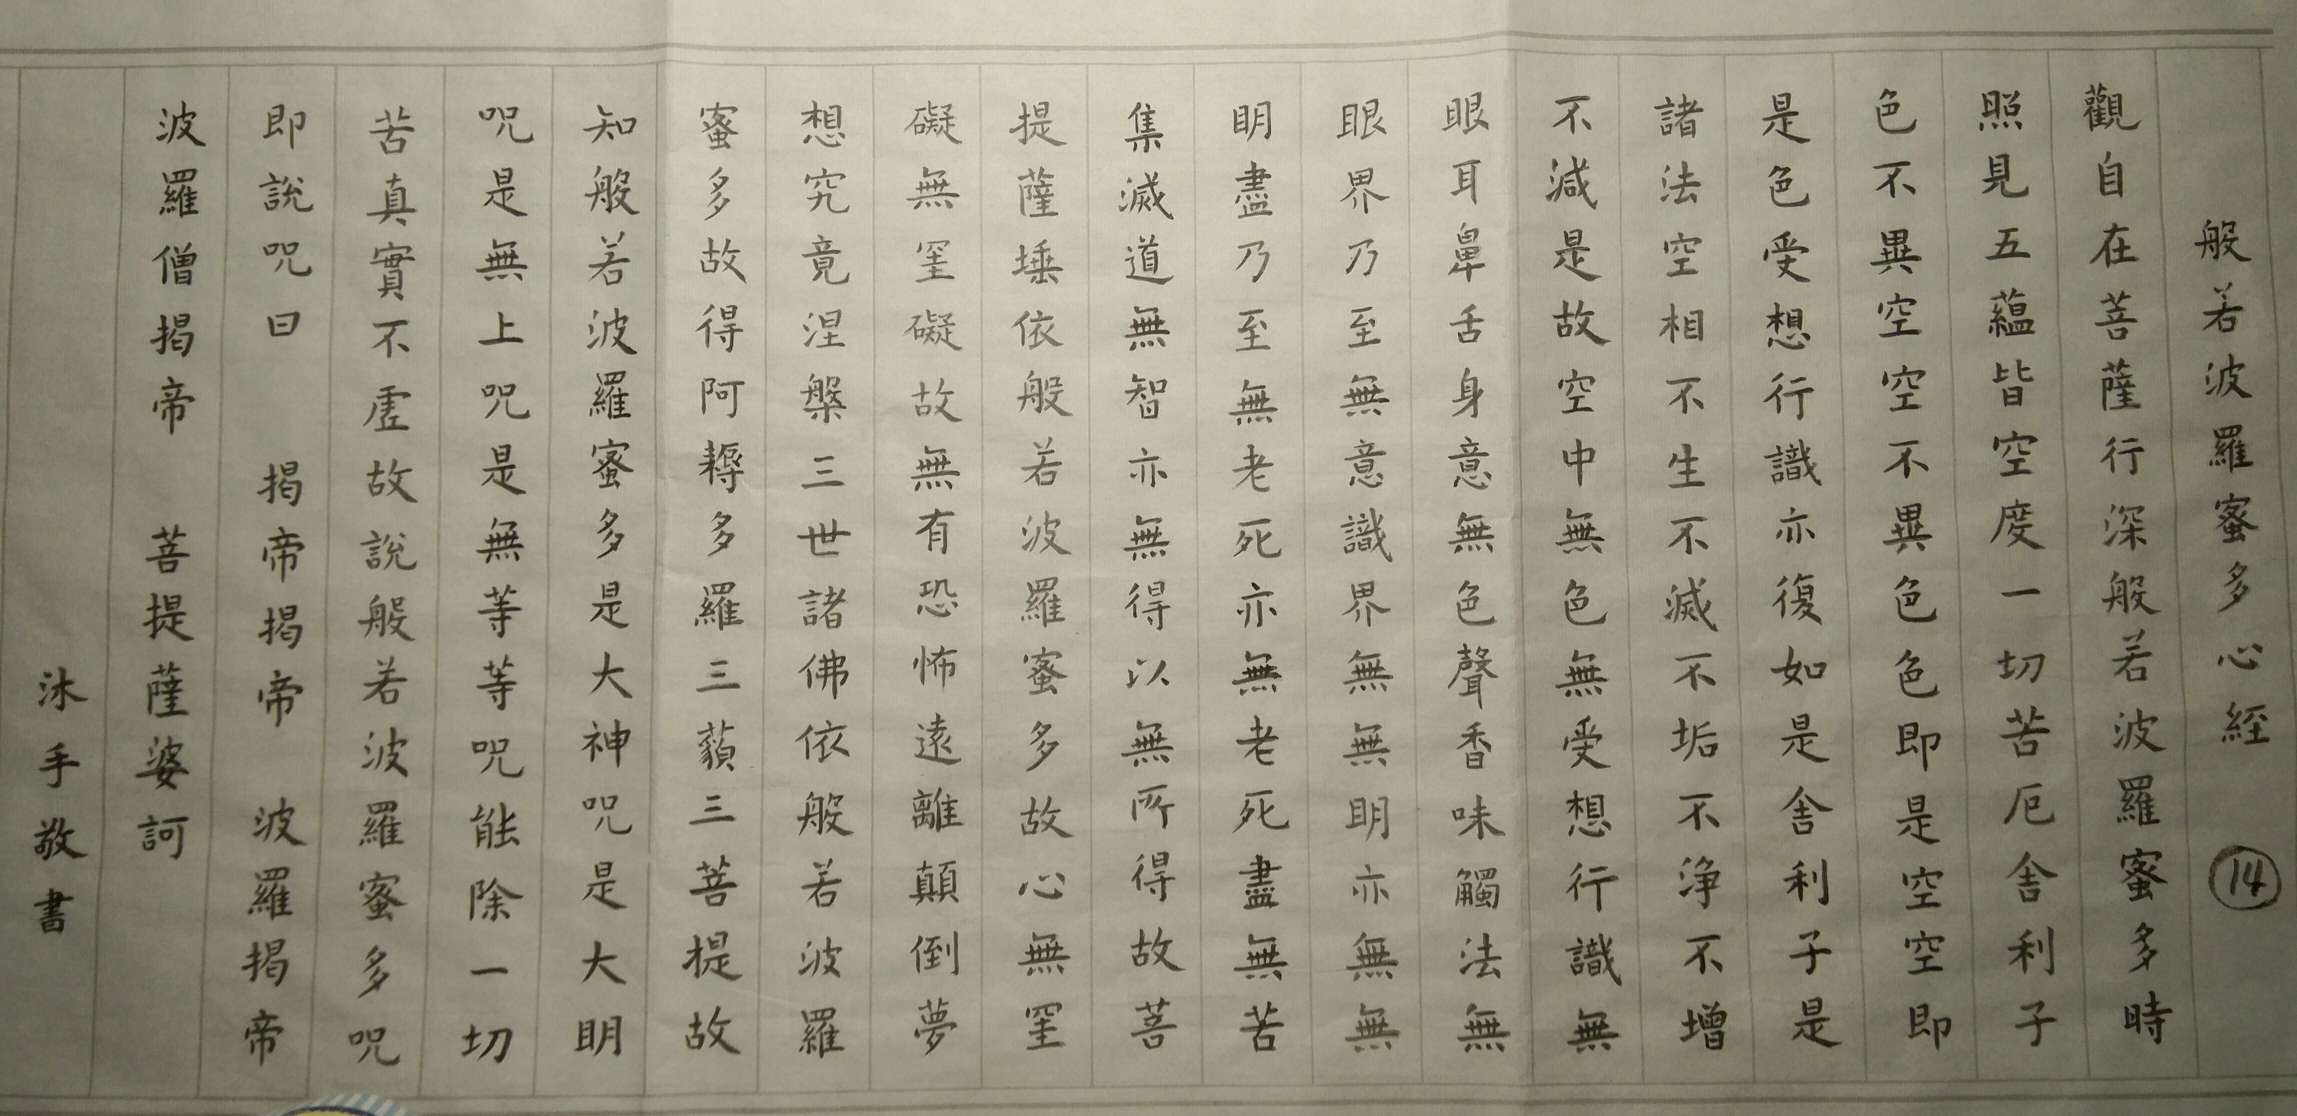 般若波羅蜜多心經 14
觀自在菩薩行深般若波羅蜜多時
照見五蘊皆空度一切苦厄舍利子
色不異空空不異色色即是空空即
是色受想行識亦復如是舍利子是
諸法空相不生不滅不垢不淨不增
不減是故空中無色無受想行識無
眼耳鼻舌身意無色聲香味觸法無
眼界乃至無意識界無無明亦無無
明盡乃至無老死亦無老死盡無苦
集滅道無智亦無得以無所得故菩
提薩埵依般若波羅蜜多故心無罣
礙無罣礙故無有恐怖遠離顛倒夢
想究竟涅槃三世諸佛依般若波羅
蜜多故得阿耨多羅三藐三菩提故
知般若波羅蜜多是大神咒是大明
咒是無上咒是無等等咒能除一切
苦真實不虛故說般若波羅蜜多咒
即說咒曰 揭帝揭帝 波羅揭帝
波羅僧揭帝 菩提薩婆訶
沐手敬書